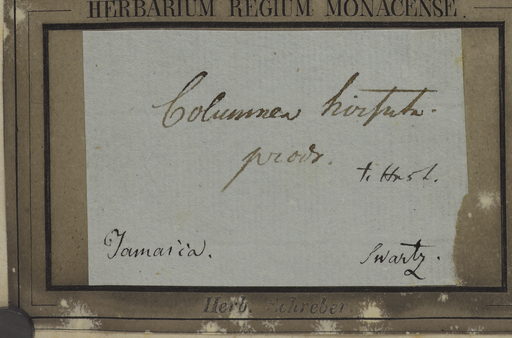 HERBARIUM REGIUM MONACENSE.
Columnea hirsuta.
prodr.
Jamaica.
Swartz.
Herb. Schreber